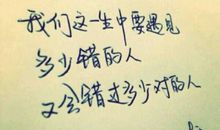 我们这一生中要遇见
多少错的人
又会错过多少对的人